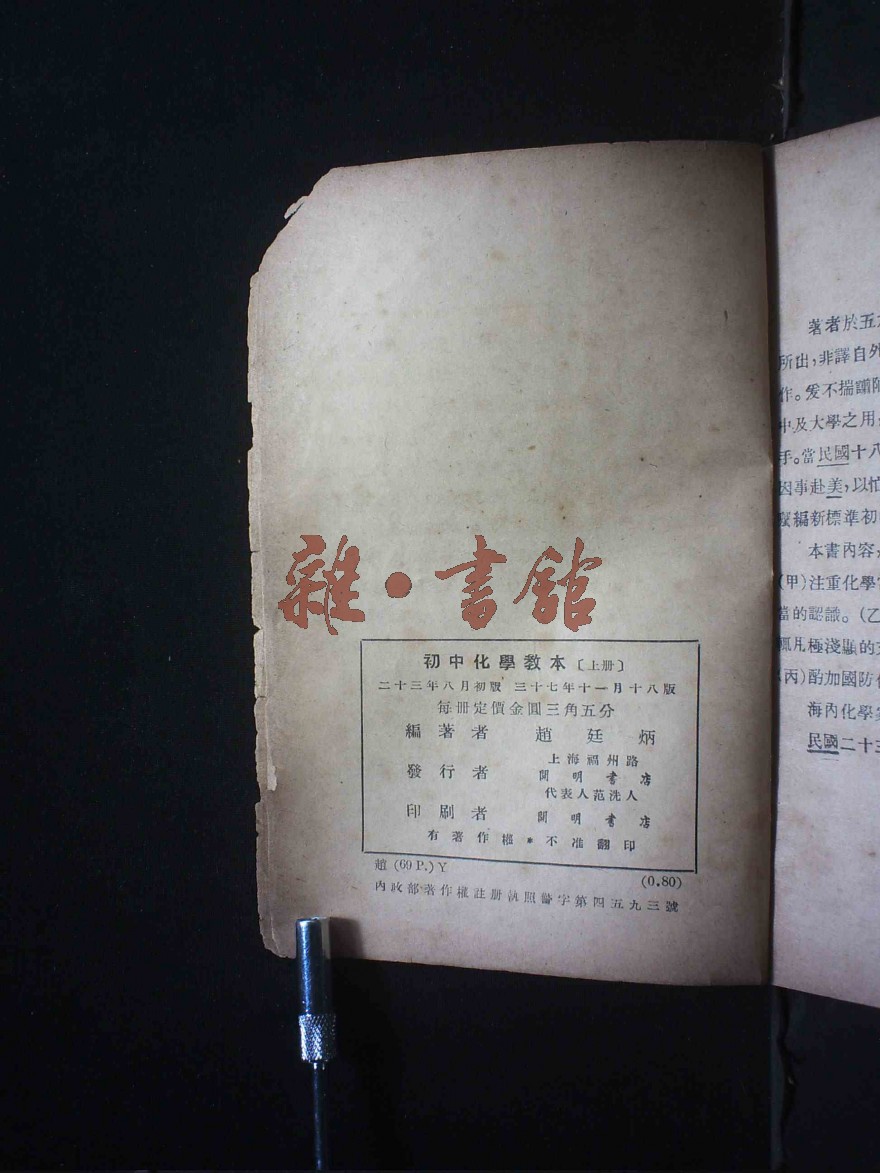 雜·書館
初中化學教本〔上册〕
二十三年八月初版 三十七年十一月十八版
每冊定價金圓三角五分
編著者 趙廷炳
發行者 上海福州路
開明書店
代表人范洗人
印刷者 開明書店
有著作權*不准翻印
趙(69 P.)Y (0.80)
內政部著作權註册執照警字第四五九三號
著者於五
所出，非譯自外
作。爰不揣譾陋
中及大學之用
手。當民國十八
因事赴美，以
編新標準初
本書內容
(甲)注重化學
當的認識。(乙
凡極淺顯的
(丙)酌加國防
海內化學
民國二十三